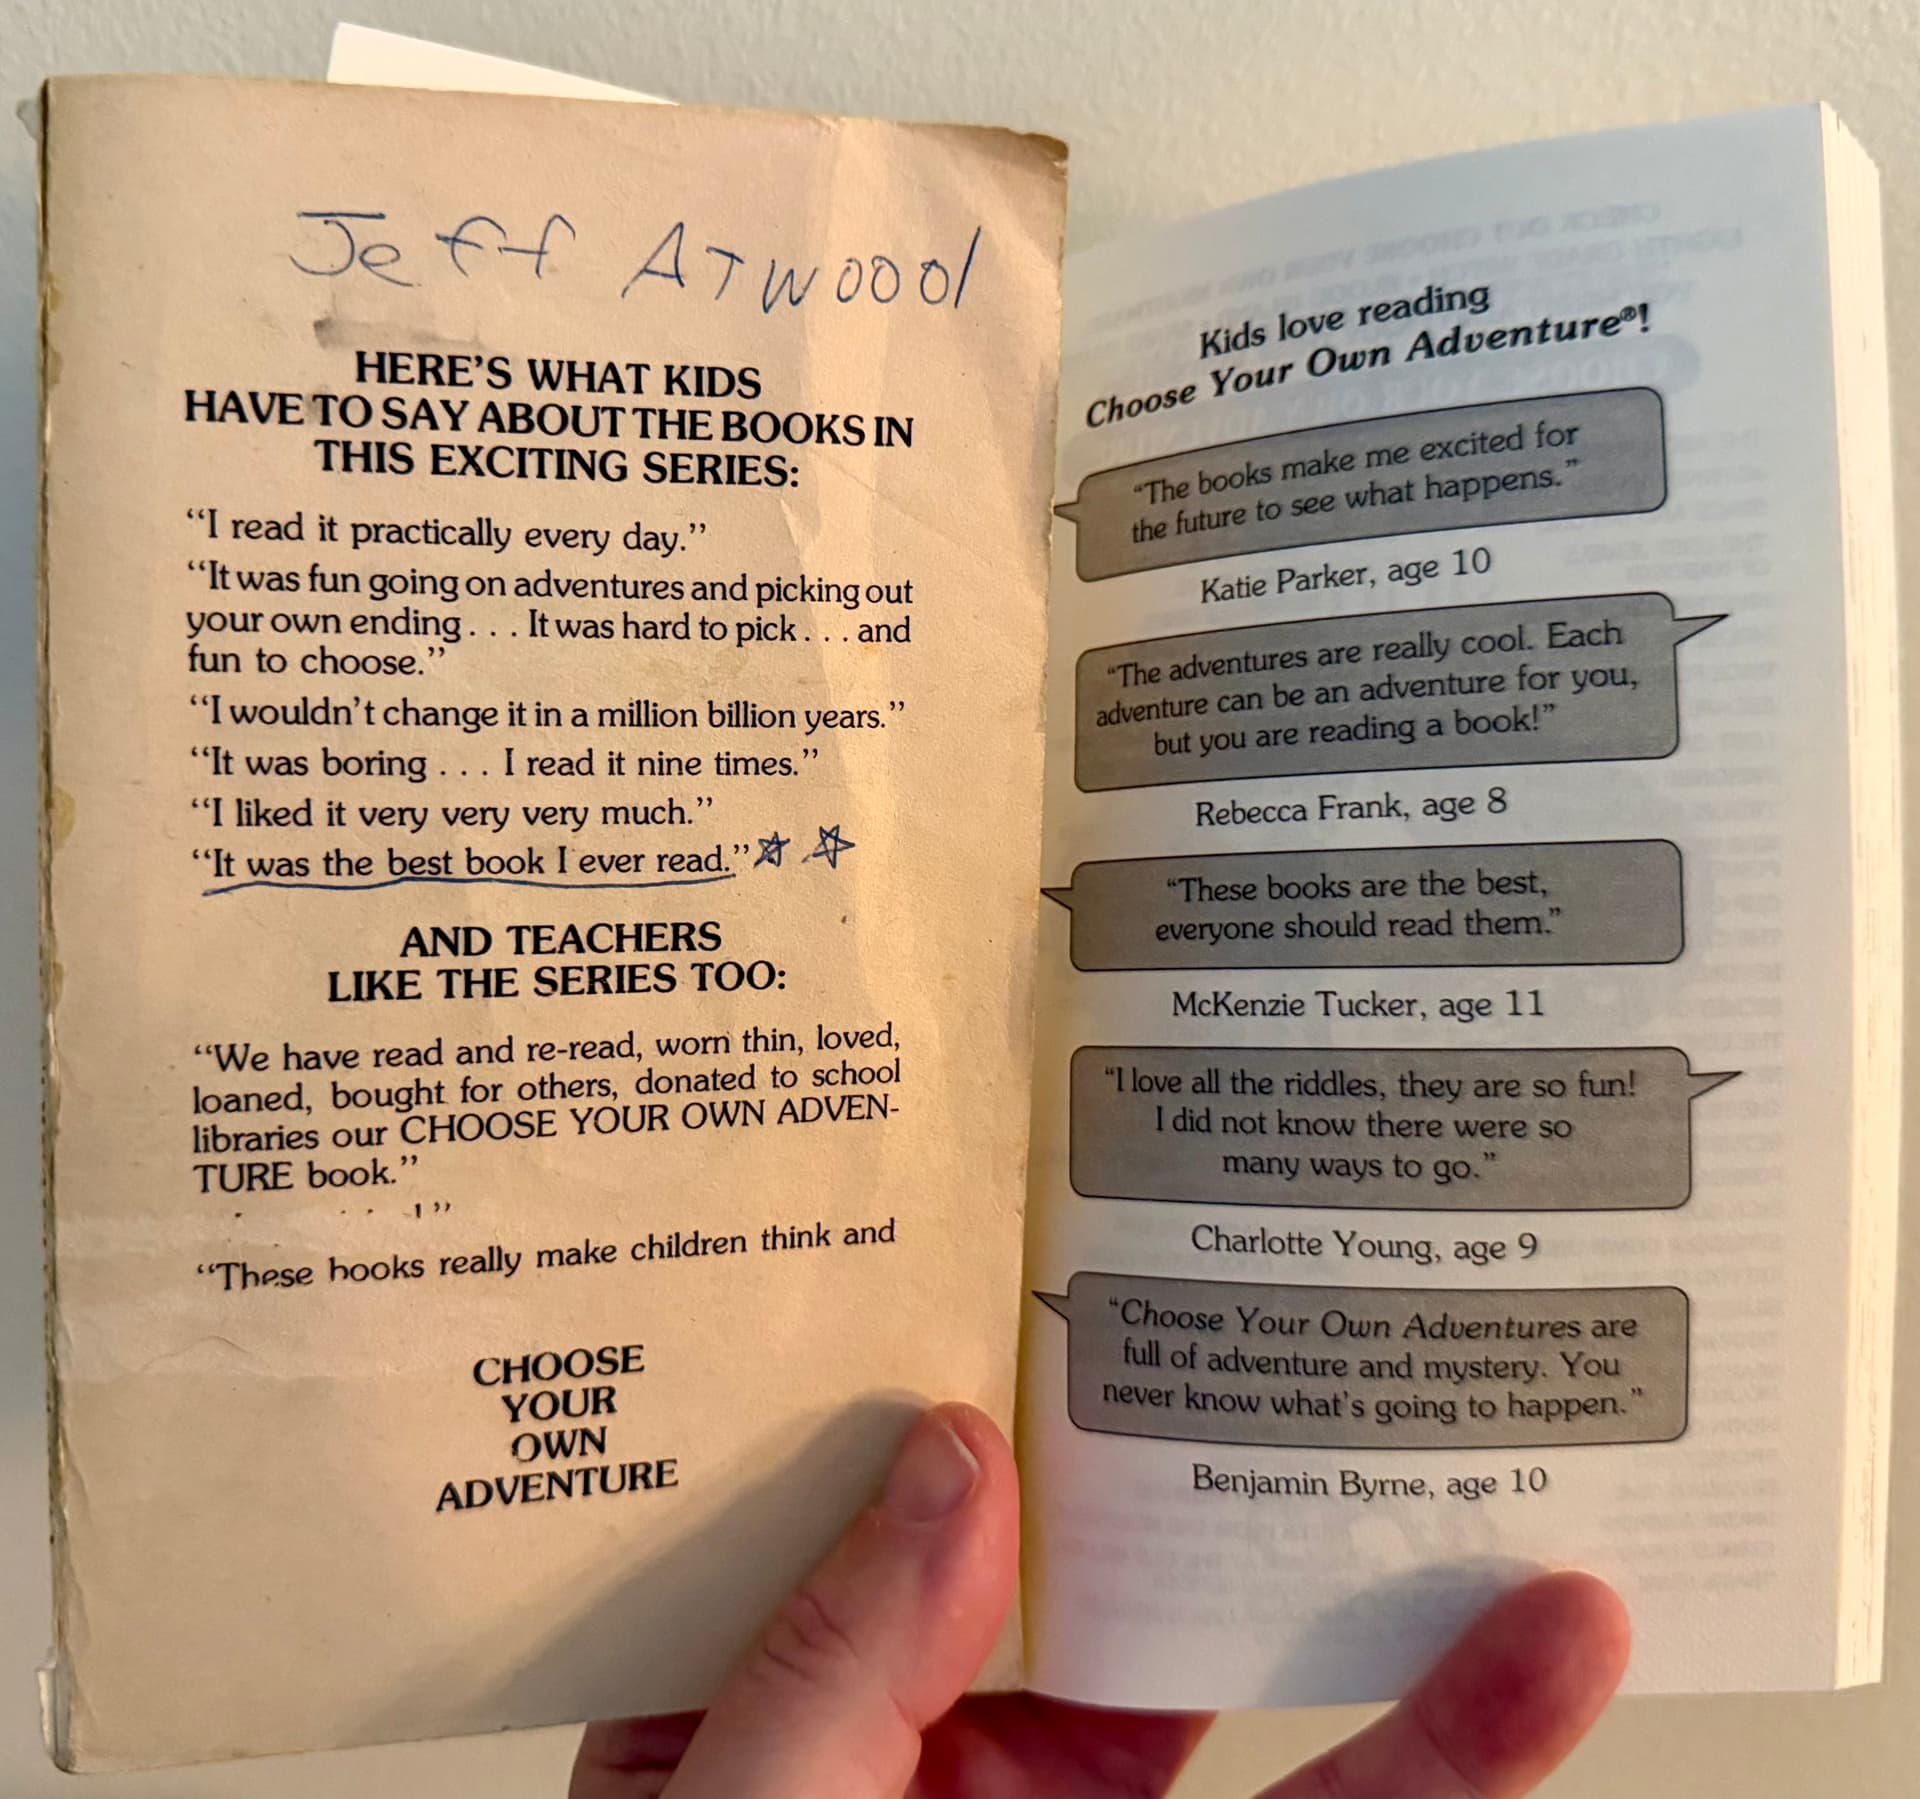 Jeff Atwood
HERE'S WHAT KIDS
HAVE TO SAY ABOUT THE BOOKS IN
THIS EXCITING SERIES:
“I read it practically every day.”
“It was fun going on adventures and picking out
your own ending . . . It was hard to pick . . . and
fun to choose.”
“I wouldn't change it in a million billion years.”
“It was boring . . . I read it nine times.”
“I liked it very very very much.”
“It was the best book I ever read.”
AND TEACHERS
LIKE THE SERIES TOO:
“We have read and re-read, worn thin, loved,
loaned, bought for others, donated to school
libraries our CHOOSE YOUR OWN ADVEN-
TURE book.”
“These books really make children think and
CHOOSE
YOUR
OWN
ADVENTURE
Kids love reading
Choose Your Own Adventure®!
“The books make me excited for
the future to see what happens.”
Katie Parker, age 10
“The adventures are really cool. Each
adventure can be an adventure for you,
but you are reading a book!”
Rebecca Frank, age 8
“These books are the best,
everyone should read them.”
McKenzie Tucker, age 11
“I love all the riddles, they are so fun!
I did not know there were so
many ways to go.”
Charlotte Young, age 9
“Choose Your Own Adventures are
full of adventure and mystery. You
never know what's going to happen.”
Benjamin Byrne, age 10